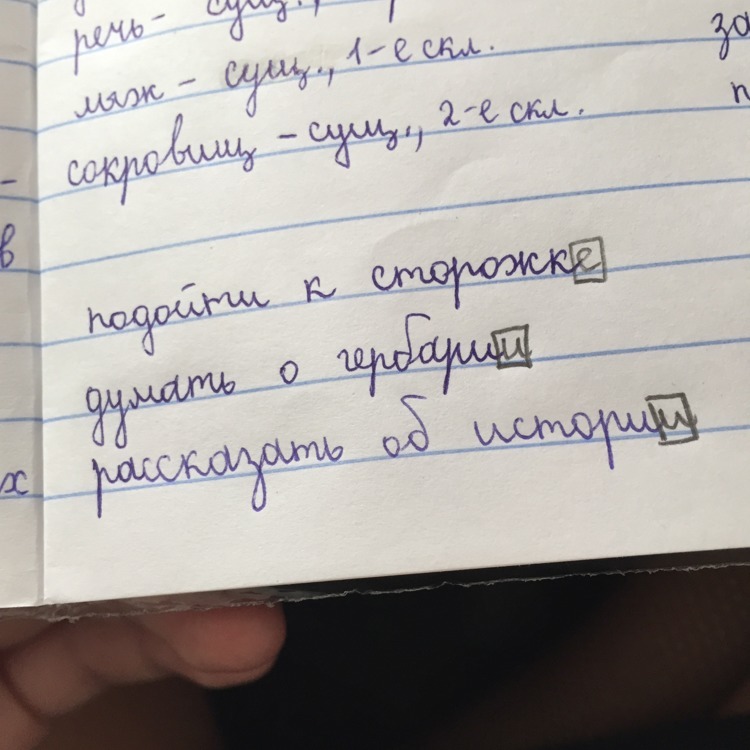 речь - сущ.,
- сущ., 1-е скл.
за
сокровищ - сущ., 2-е скл.
п
-
в
подойти к сторожке
думать о гербарии
х
рассказать об истории